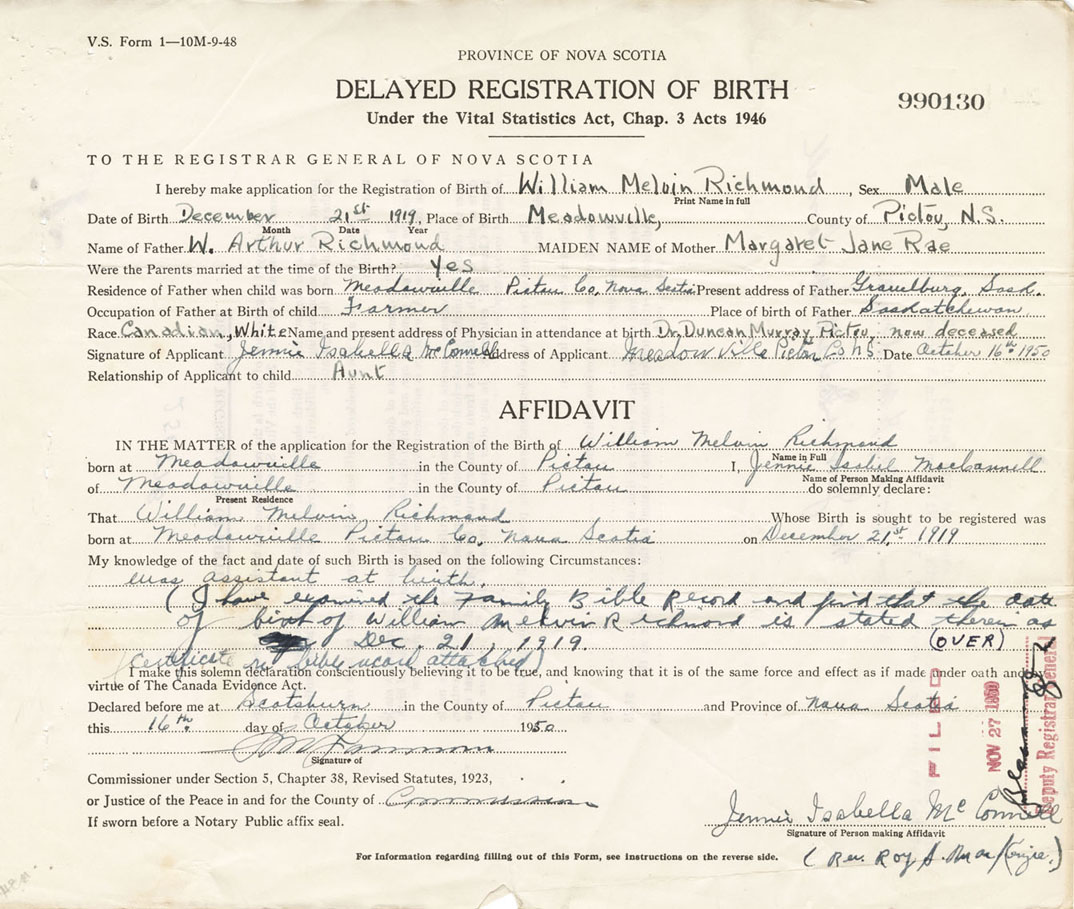 V.S. Form 1—10M-9-48
PROVINCE OF NOVA SCOTIA
DELAYED REGISTRATION OF BIRTH
990130
Under the Vital Statistics Act, Chap. 3 Acts 1946
TO THE REGISTRAR GENERAL OF NOVA SCOTIA
I hereby make application for the Registration of Birth of William Melvin Richmond, Sex Male
Print Name in full
Date of Birth December 21st 1919, Place of Birth Meadowville, County of Pictou, N.S.
Month Date Year
Name of Father W. Arthur Richmond MAIDEN NAME of Mother Margaret Jane Rae
Were the Parents married at the time of the Birth? Yes
Residence of Father when child was born Meadowville Pictou Co, Nova Scotia Present address of Father Gravelburg, Sask.
Occupation of Father at Birth of child Farmer Place of birth of Father Saskatchewan
Race Canadian, White Name and present address of Physician in attendance at birth Dr. Duncan Murray Pictou, now deceased
Signature of Applicant Jennie Isabella McConnell Address of Applicant Meadowville Pictou Co NS Date October 16th 1950
Relationship of Applicant to child Aunt
AFFIDAVIT
IN THE MATTER of the application for the Registration of the Birth of William Melvin Richmond
Name in Full
born at Meadowville in the County of Pictou I, Jennie Isabel MacConnell
Name of Person Making Affidavit
of Meadowville in the County of Pictou do solemnly declare:
Present Residence
That William Melvin Richmond Whose Birth is sought to be registered was
born at Meadowville Pictou Co, Nova Scotia on December 21,st 1919
My knowledge of the fact and date of such Birth is based on the following Circumstances:
was assistant at birth.
(I have examined the Family Bible Record and find that the date
of birth of William Melvin Richmond is stated therein as
Dec. 21, 1919. (OVER)
(Certificate of bible record attached)
I make this solemn declaration conscientiously believing it to be true, and knowing that it is of the same force and effect as if made under oath and by
virtue of The Canada Evidence Act.
Declared before me at Scotsburn in the County of Pictou and Province of Nova Scotia
this 16th day of October 1950
Signature of
Commissioner under Section 5, Chapter 38, Revised Statutes, 1923,
or Justice of the Peace in and for the County of
If sworn before a Notary Public affix seal.
Jennie Isabella McConnell
Signature of Person making Affidavit
For Information regarding filling out of this Form, see instructions on the reverse side.
(Rev. Roy A. MacKenzie.)
FILED
NOV 27 1950
Deputy Registrar General